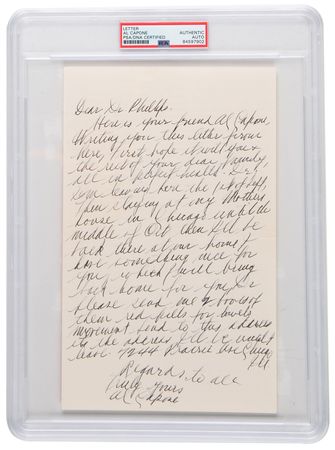 LETTER
AL CAPONE
PSA/DNA CERTIFIED
AUTHENTIC
AUTO
PSA
84597902
Dear Dr Philipps.
Here is your friend Al Capone,
Writing you this letter from
here, first hope it will you &
the rest of your dear family,
all in perfect health. Dr
I'm leaving here the 1st of Sept,
then staying at my Mothers
house in Chicago until the
middle of Oct then I'll be
back there at our home, I
have something nice for
you, which I will bring
back home for you, Dr
please send me 2 boxes of
them red pills for bowels
movement, send to this address
its the address I'll be until I
leave. 7244 Prairie Ave Chicago
Ill
Regards to all
Truly yours
Al Capone